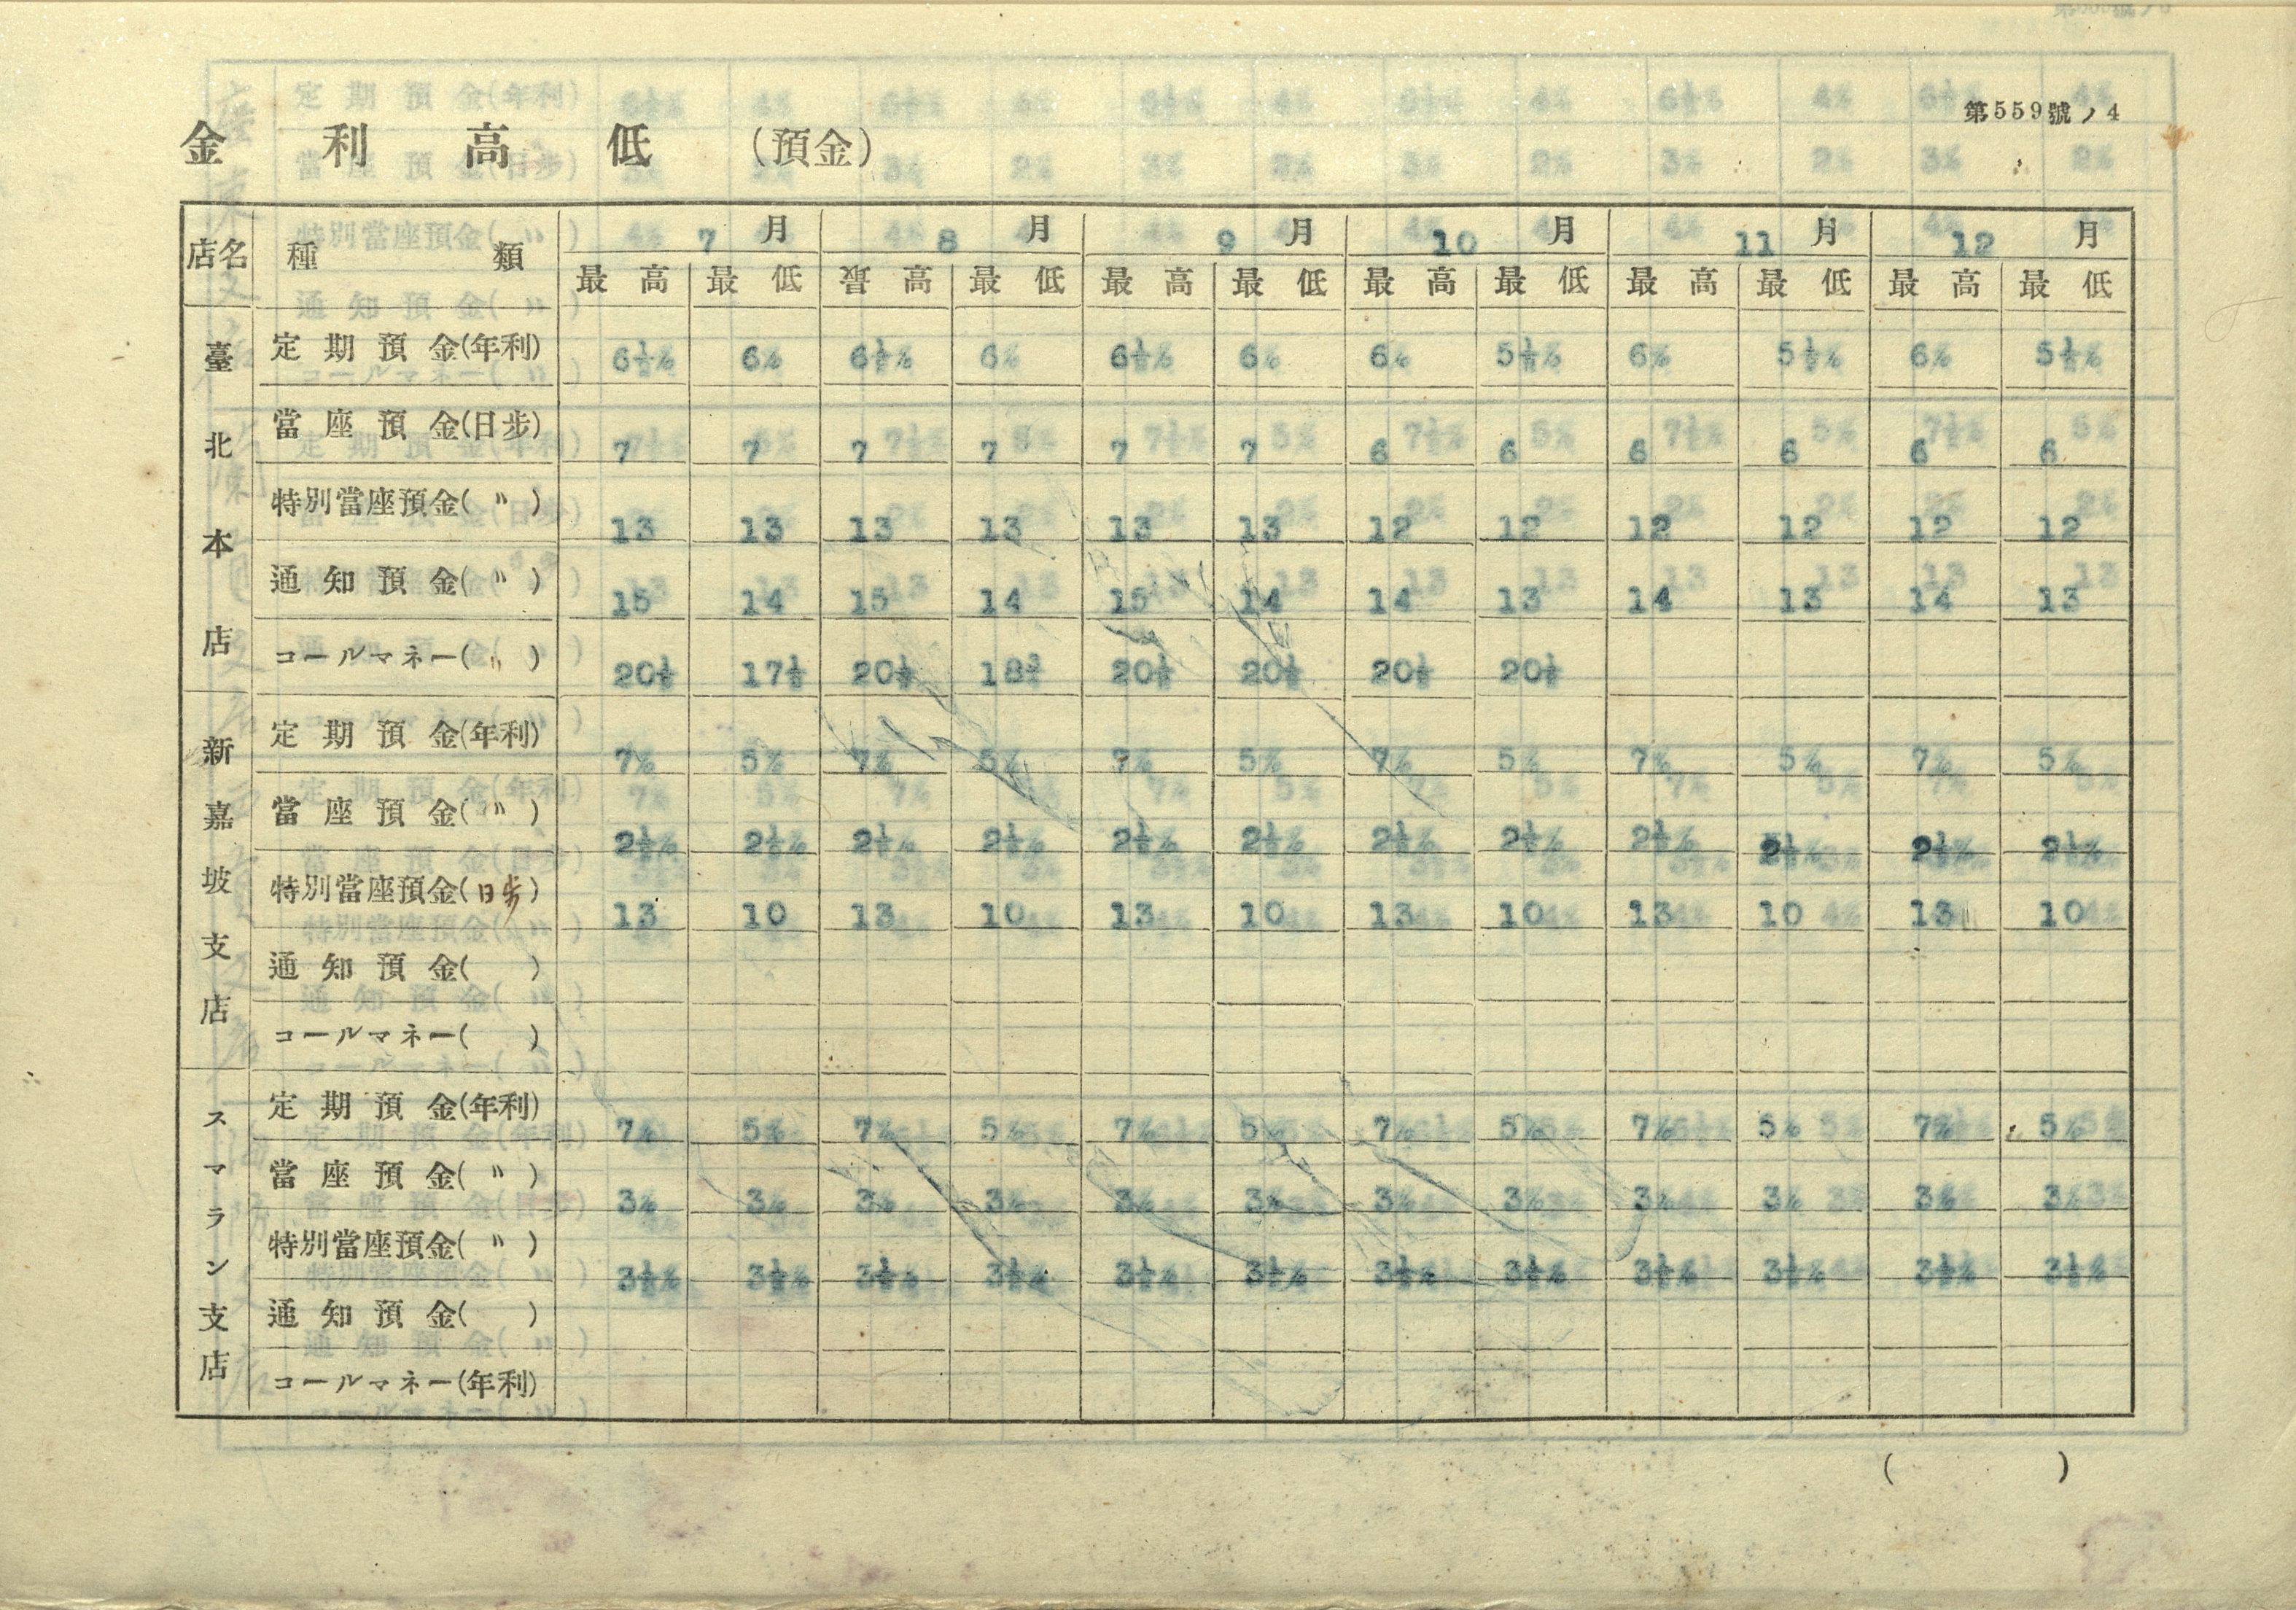 第559號ノ4
金利高低 (預金)
店名 種類 7月 8月 9月 10月 11月 12月
最高 最低 最高 最低 最高 最低 最高 最低 最高 最低 最高 最低
臺北本店
定期預金(年利) 6½% 6% 6½% 6% 6½% 6% 6% 5½% 6% 5½% 6% 5½%
當座預金(日步) 7 7 7 7 7 7 6 6 6 6 6 6
特別當座預金(〃) 13 13 13 13 13 13 12 12 12 12 12 12
通知預金(〃) 15 14 15 14 15 14 14 13 14 13 14 13
コールマネー(〃) 20½ 17½ 20½ 20½ 20½ 20½ 20½
新嘉坡支店
定期預金(年利) 7% 5% 7% 5% 7% 5% 7% 5% 7% 5% 7% 5%
當座預金(〃) 2½% 2½% 2½% 2½% 2½% 2½% 2½% 2½% 2½% 2½% 2½% 2½%
特別當座預金(日步) 13 10 13 10 13 10 13 10 13 10 13 10
通知預金( )
コールマネー( )
スマラン支店
定期預金(年利) 7% 5% 7% 5% 7% 5% 7% 5% 7% 5% 7% 5%
當座預金(〃) 3% 3% 3% 3% 3% 3% 3% 3% 3% 3% 3% 3%
特別當座預金(〃) 3½% 3½% 3½% 3½% 3½% 3½% 3½% 3½% 3½% 3½% 3½% 3½%
通知預金( )
コールマネー(年利)
( )